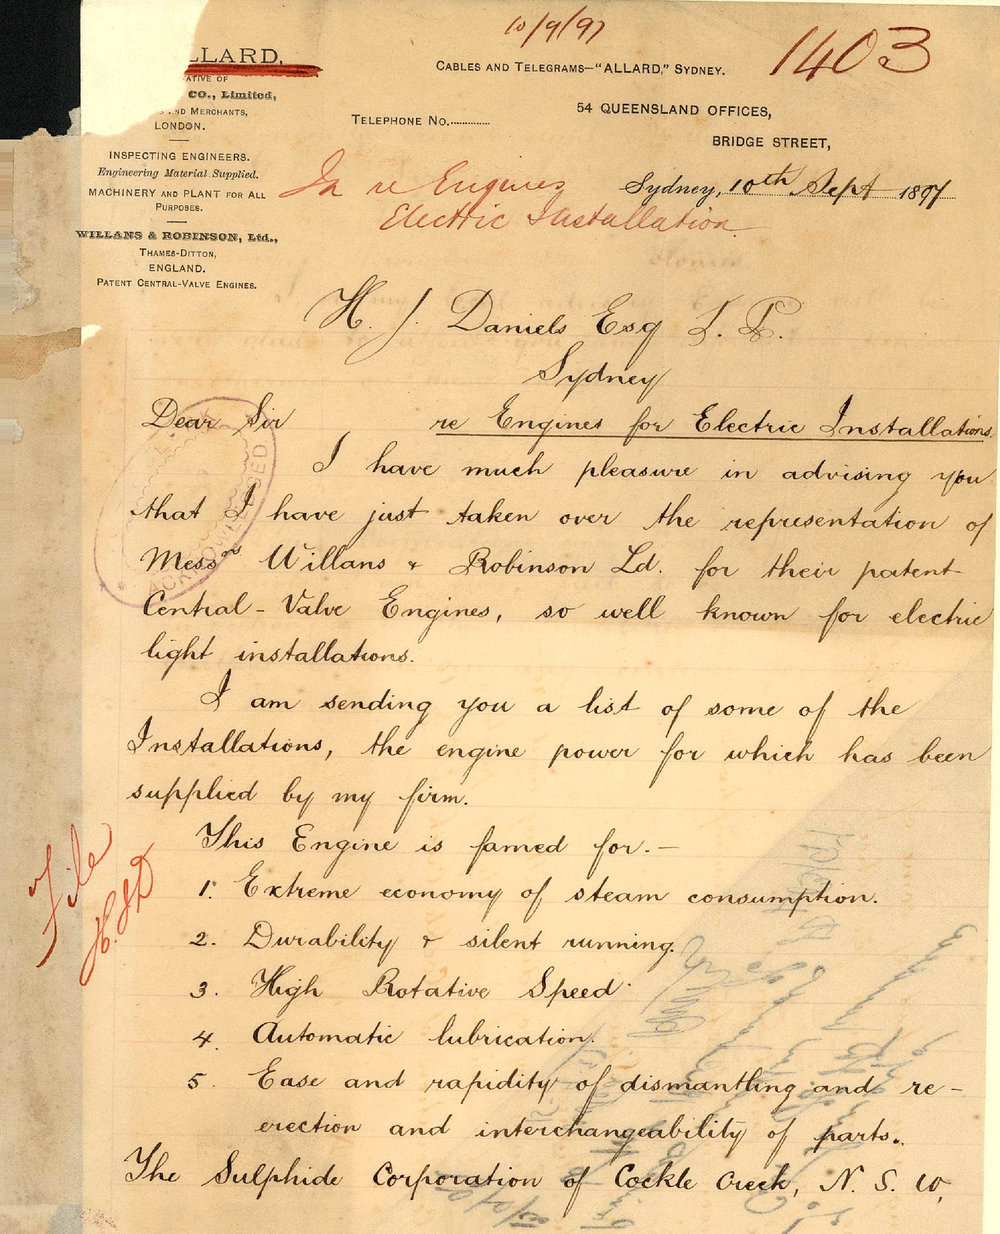 10/9/97
1403
LLARD,
ATIVE OF
CO., Limited,
AND MERCHANTS,
LONDON.
INSPECTING ENGINEERS.
Engineering Material Supplied.
MACHINERY AND PLANT FOR ALL
PURPOSES.
WILLANS & ROBINSON, Ltd.,
THAMES-DITTON,
ENGLAND.
PATENT CENTRAL-VALVE ENGINES.
CABLES AND TELEGRAMS—"ALLARD," SYDNEY.
TELEPHONE NO.............
54 QUEENSLAND OFFICES,
BRIDGE STREET,
Sydney, 10th Sept 1897
In re Engines
Electric Installation
H. J. Daniels Esq
Sydney
Dear Sir re Engines for Electric Installations,
I have much pleasure in advising you
that I have just taken over the representation of
Messrs Willans & Robinson Ld. for their patent
Central-Valve Engines, so well known for electric
light installations.
I am sending you a list of some of the
Installations, the engine power for which has been
supplied by my firm.
This Engine is famed for.—
1. Extreme economy of steam consumption.
2. Durability & silent running.
3. High Rotative Speed.
4. Automatic lubrication.
5. Ease and rapidity of dismantling and re-
erection and interchangeability of parts.
The Sulphide Corporation of Cockle Creek, N. S. W,
File
H.J.D
ACKNOWLEDGED